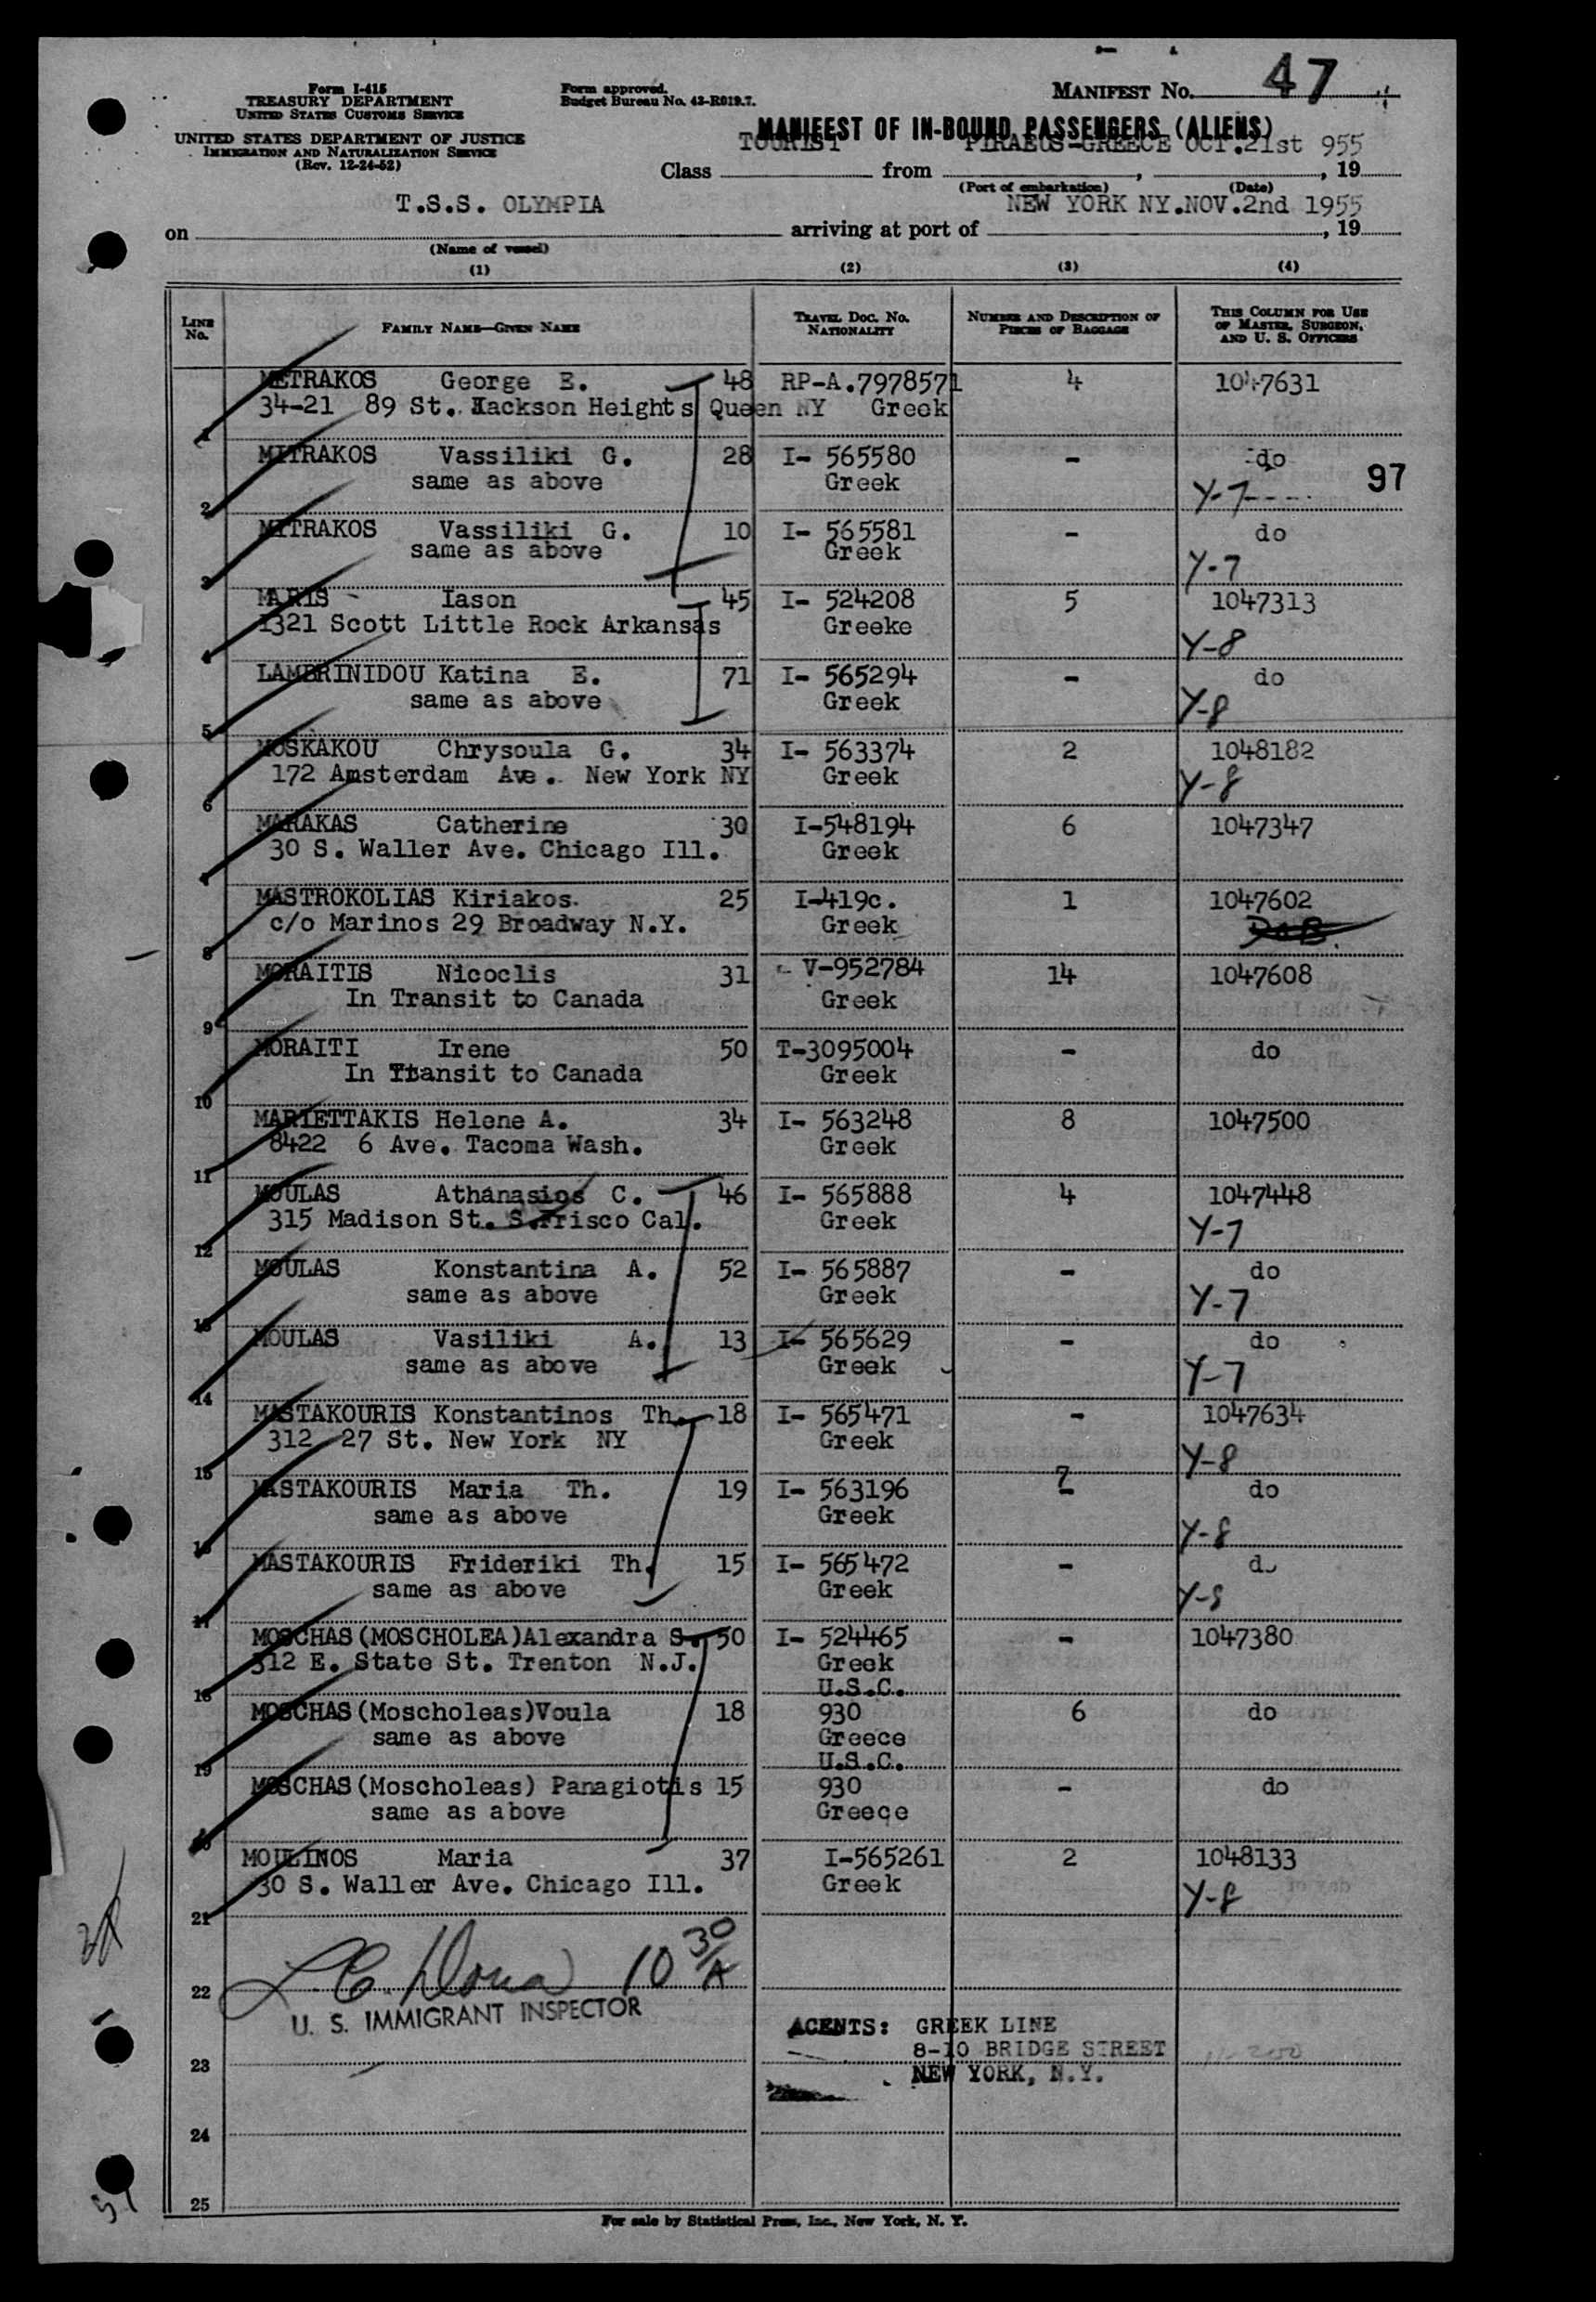 Form I-415
TREASURY DEPARTMENT
UNITED STATES CUSTOMS SERVICE
UNITED STATES DEPARTMENT OF JUSTICE
IMMIGRATION AND NATURALIZATION SERVICE
(Rev. 12-24-52)
Form approved.
Budget Bureau No. 43-R019.7.
MANIFEST No. 47
MANIFEST OF IN-BOUND PASSENGERS (ALIENS)
TOURIST PIRAEUS-GREECE OCT.21st 955
Class from , , 19
(Port of embarkation) (Date)
T.S.S. OLYMPIA NEW YORK NY.NOV.2nd 1955
on arriving at port of , 19
(Name of vessel)
(1) (2) (3) (4)
LINE No. FAMILY NAME—GIVEN NAME TRAVEL DOC. NO. NATIONALITY NUMBER AND DESCRIPTION OF PIECES OF BAGGAGE THIS COLUMN FOR USE OF MASTER, SURGEON, AND U. S. OFFICERS
METRAKOS George E. 48 RP-A.7978571 4 1047631
34-21 89 St. Jackson Heights Queen NY Greek
1
MITRAKOS Vassiliki G. 28 I- 565580 - do 97
same as above Greek Y-7
2
MITRAKOS Vassiliki G. 10 I- 565581 - do
same as above Greek Y-7
3
MARIS Iason 45 I- 524208 5 1047313
1321 Scott Little Rock Arkansas Greeke Y-8
4
LAMBRINIDOU Katina E. 71 I- 565294 - do
same as above Greek Y-8
5
MOSKAKOU Chrysoula G. 34 I- 563374 2 1048182
172 Amsterdam Ave. New York NY Greek Y-8
6
MARAKAS Catherine 30 I-548194 6 1047347
30 S. Waller Ave. Chicago Ill. Greek
7
MASTROKOLIAS Kiriakos. 25 I-419c. 1 1047602
c/o Marinos 29 Broadway N.Y. Greek
8
MORAITIS Nicoclis 31 V-952784 14 1047608
In Transit to Canada Greek
9
MORAITI Irene 50 T-3095004 - do
In Transit to Canada Greek
10
MARIETTAKIS Helene A. 34 I- 563248 8 1047500
8422 6 Ave. Tacoma Wash. Greek
11
MOULAS Athanasios C. 46 I- 565888 4 1047448
315 Madison St. S.Frisco Cal. Greek Y-7
12
MOULAS Konstantina A. 52 I- 565887 - do
same as above Greek Y-7
13
MOULAS Vasiliki A. 13 I- 565629 - do
same as above Greek Y-7
14
MASTAKOURIS Konstantinos Th. 18 I- 565471 - 1047634
312 27 St. New York NY Greek Y-8
15
MASTAKOURIS Maria Th. 19 I- 563196 7 - do
same as above Greek Y-8
16
MASTAKOURIS Frideriki Th. 15 I- 565472 - do
same as above Greek Y-8
17
MOSCHAS(MOSCHOLEA)Alexandra S. 50 I- 524465 - 1047380
312 E. State St. Trenton N.J. Greek
18 U.S.C.
MOSCHAS(Moscholeas)Voula 18 930 6 do
same as above Greece
19 U.S.C.
MOSCHAS(Moscholeas) Panagiotis 15 930 - do
same as above Greece
20
MOULINOS Maria 37 I-565261 2 1048133
30 S. Waller Ave. Chicago Ill. Greek Y-8
21
10 30/A
22
U. S. IMMIGRANT INSPECTOR
AGENTS: GREEK LINE
8-10 BRIDGE STREET
23
NEW YORK, N.Y.
24
25
For sale by Statistical Press, Inc., New York, N. Y.